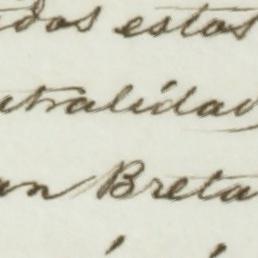 idos estos
utralidad
an Breta